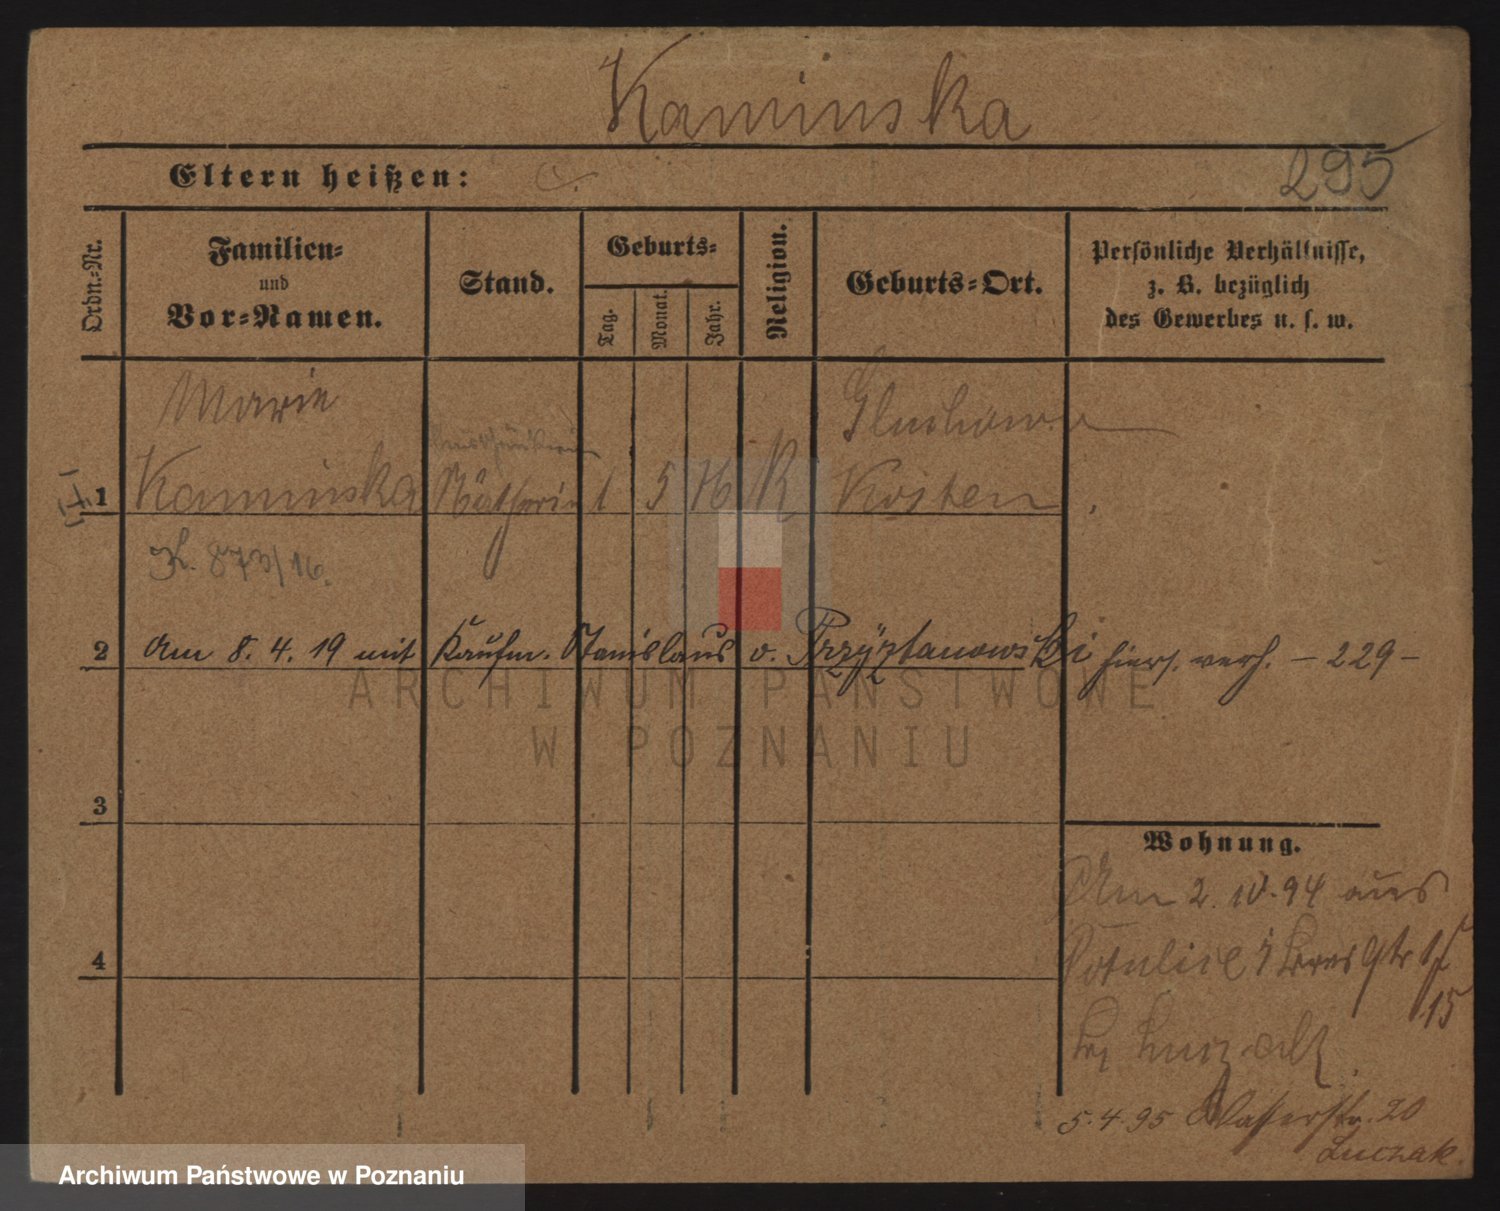 Kaminska
295
Eltern heißen:
Ordn.-Nr.
Familien-
und
Vor-Namen.
Stand.
Geburts-
Tag.
Monat.
Jahr.
Religion.
Geburts-Ort.
Persönliche Verhältnisse,
z. B. bezüglich
des Gewerbes u. s. w.
Marie
Gluchowo
1 Kaminska Nätherin 1 5 76 K Kosten
K. 873/16.
2 Am 8. 4. 19 mit Kaufm. Stanislaus v. Trzyztanowski hiers. verh. – 229 –
ARCHIWUM PAŃSTWOWE
W POZNANIU
3
Wohnung.
Am 2. 10. 94 aus
4
Potulice
15
5. 4. 95 Wasserstr. 20
Luczak.
Archiwum Państwowe w Poznaniu